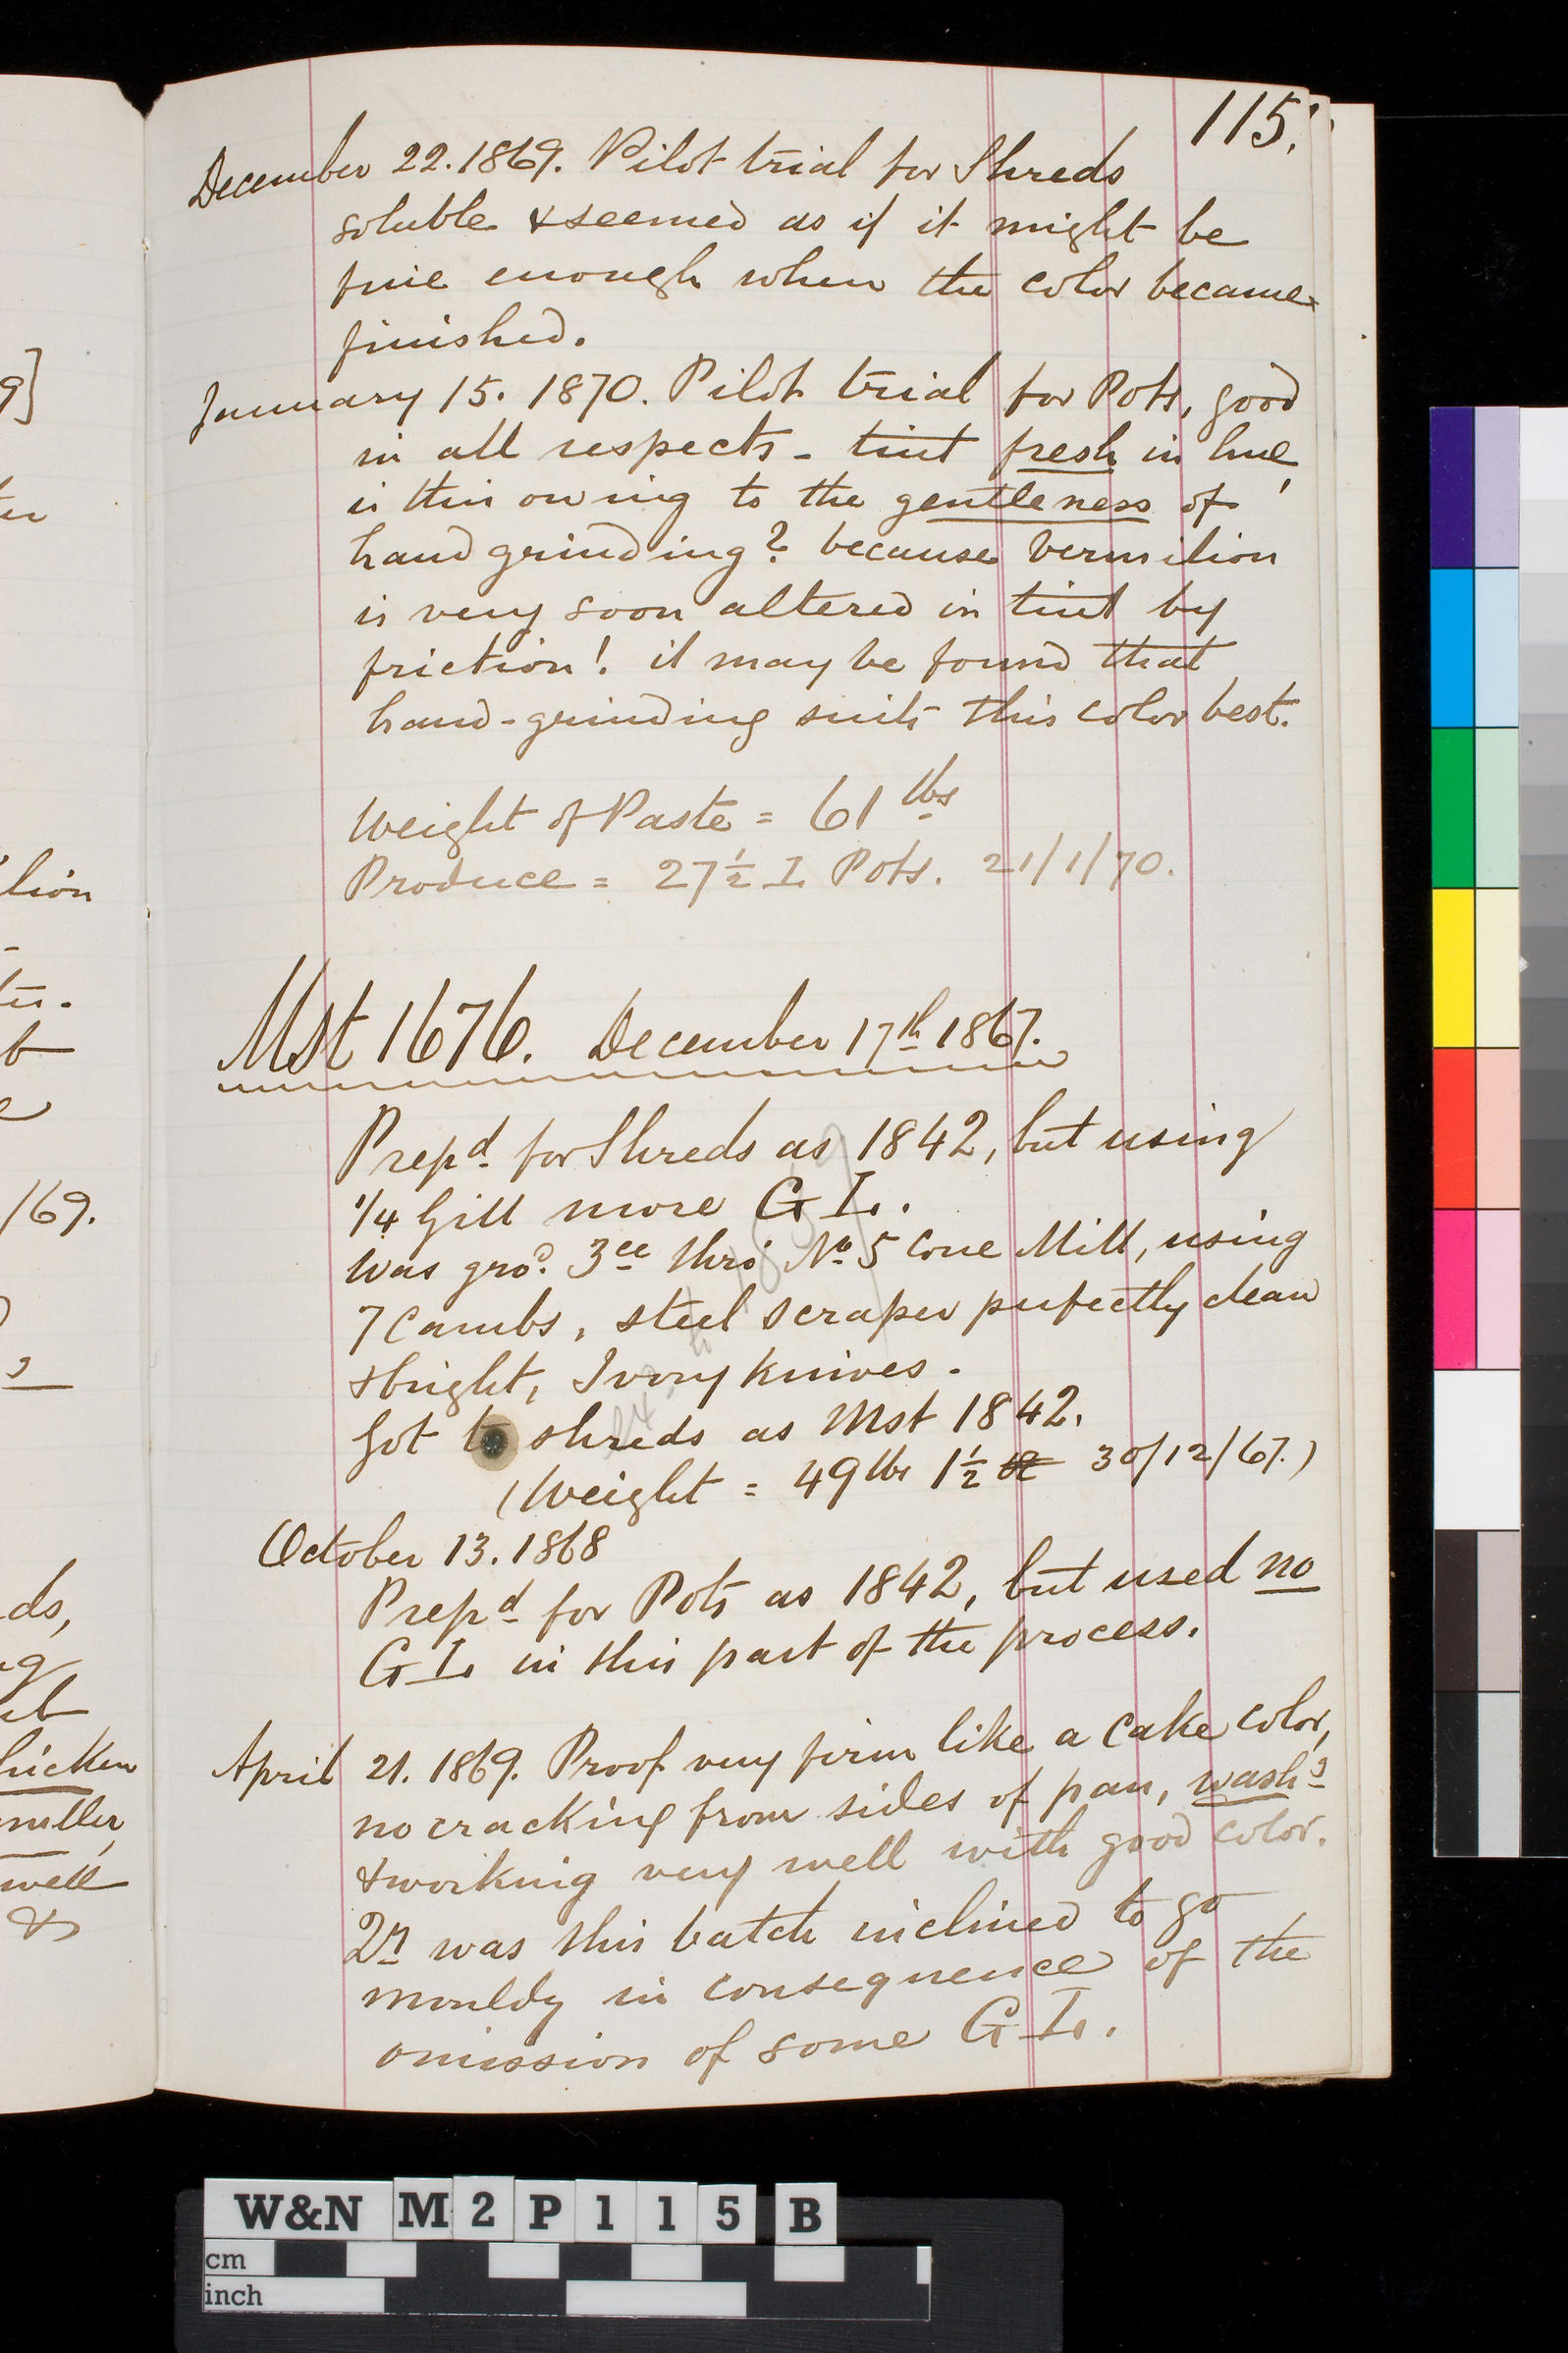 115.
December 22. 1869. Pilot trial for Shreds
soluble & seemed as if it might be
fine enough when the color became
finished.
January 15. 1870. Pilot trial for Pots, good
in all respects - tint fresh in hue,
is this owing to the gentleness of
hand grinding? because Vermilion
is very soon altered in tint by
friction! it may be found that
hand-grinding suits this color best.
Weight of Paste = 61 lbs
Produce = 27½ I Pots. 21/1/70.
Mst 1676. December 17th 1867.
Prepd for Shreds as 1842, but using
1/4 Gill more G I.
Was grod. 3ce thro' No 5 Cone Mill, using
7 Cambs, steel scraper perfectly clean
& bright, Ivory knives.
Got to shreds as Mst 1842.
(Weight = 49 lbs 1½ 30/12/67.)
October 13. 1868
Prepd for Pots as 1842, but used no
G I. in this part of the process.
April 21. 1869. Proof very firm like a Cake color,
no cracking from sides of pan, washg
& working very well with good color.
Qy was this batch inclined to go
mouldy in consequence of the
omission of some G I.
9]
lion
/69.
ds,
hicken
muller,
well
&
W&N M 2 P 1 1 5 B
cm
inch